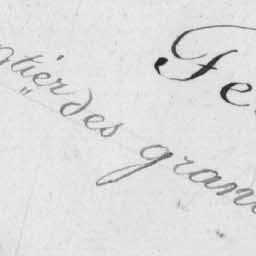 Fe
tier des gran